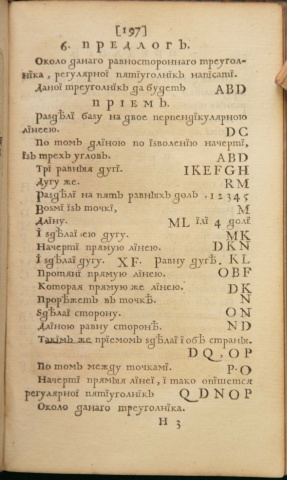 [197]
6. ПРЕДЛОГЪ.
Около данаго равностороннаго треугол-
нїка, регулярної пятїуголнїкъ напісаті.
Даної треуголнїкъ да будетъ ABD
ПРІЕМЪ.
Раздѣлї базу на двое перпендїкулярною
лїнеею. DC
По томъ длїною по їзволенїю начертї,
їзъ трехъ угловъ. ABD
Трї равнїя дугї. IKEFGH
Дугу же. RM
Раздѣлї на пять равнїхъ долъ .12345
Возмї їзъ точкї, M
Длїну. ML їлї 4 долї
І здѣлаї ею дугу. MK
Начертї прямую лїнею. DKN
І здѣлаї дугу. XF. равну дугѣ. KL
Протяні прямую лїнею. OBF
Которая прямую же лїнею. DK
Прорѣжетъ въ точкѣ. N
Здѣлаї сторону. ON
Длїною равну сторонѣ. ND
Такїмъ же прїемомъ здѣлаї ї обѣ страны.
DQ, OP
По томъ между точкамї. P.O
Начертї прямыя лїнеї, ї тако опїшется
регулярної пятїуголнїкъ QDNOP
Около данаго треуголнїка.
Н 3